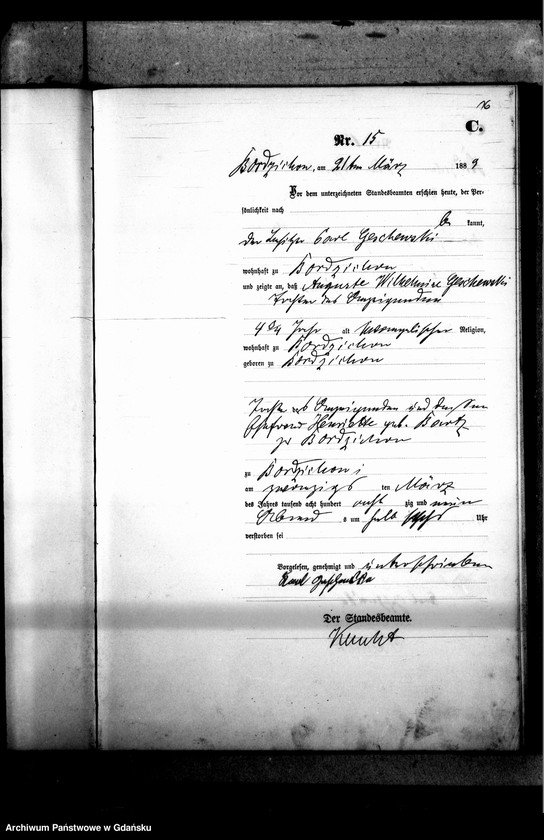 76
C.
Nr. 15
Bordzichow, am 21ten März 1889
Vor dem unterzeichneten Standesbeamten erschien heute, der Per-
sönlichkeit nach
be kannt,
der Besitzer Carl Geschewski
wohnhaft zu Bordzichow
und zeigte an, daß Auguste Wilhelmine Geschewski
Tochter des Anzeigenden
4 3/4 Jahr alt evangelischer Religion,
wohnhaft zu Bordzichow
geboren zu Bordzichow
Tochter des Anzeigenden und dessen
Ehefrau Henriette geb. Bartz
zu Bordzichow
zu Bordzichow
am zwanzigsten März
des Jahres tausend acht hundert acht zig und neun
Abends um halb sechs Uhr
verstorben sei
Vorgelesen, genehmigt und unterschrieben
Carl
Der Standesbeamte.
Archiwum Państwowe w Gdańsku